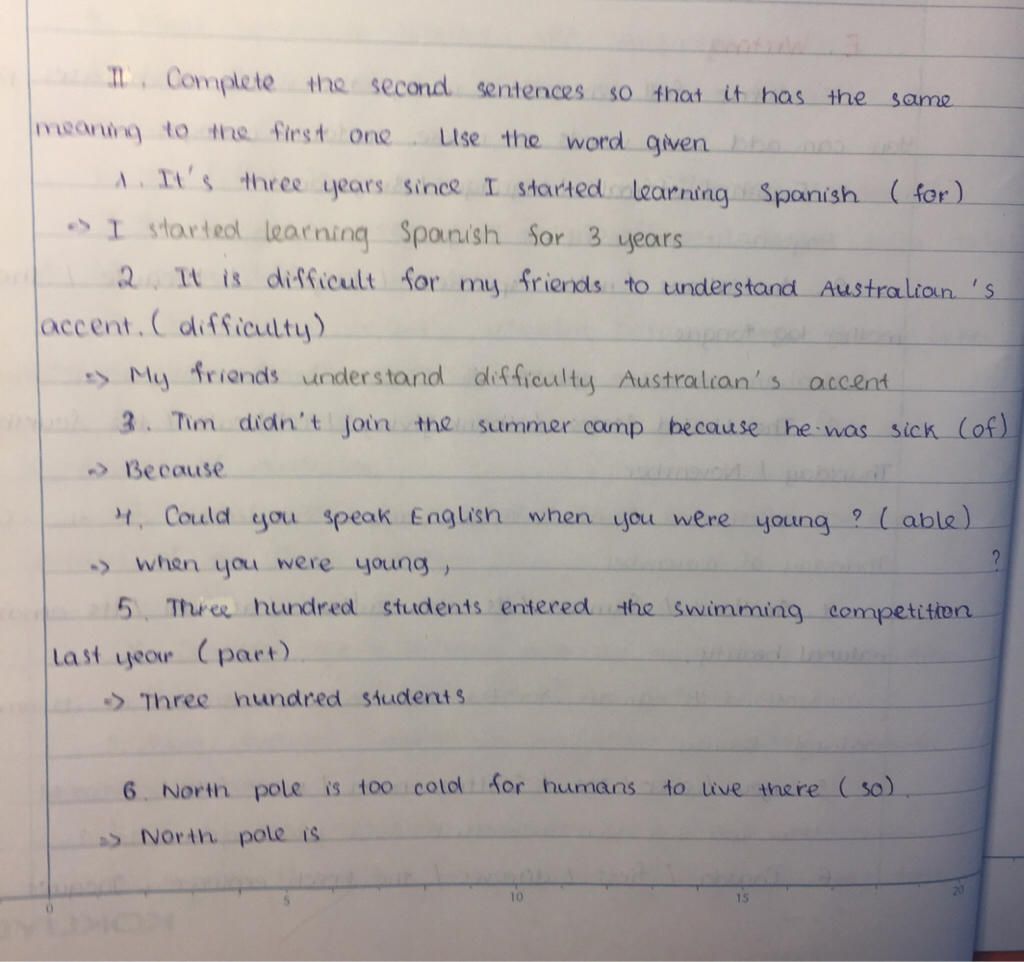 II. Complete the second sentences so that it has the same
meaning to the first one. Use the word given
1. It's three years since I started learning Spanish (for)
=> I started learning Spanish for 3 years
2 It is difficult for my friends to understand Australian's
accent. (difficulty)
=> My friends understand difficulty Australian's accent
3. Tim didn't join the summer camp because he was sick (of)
=> Because
4. Could you speak English when you were young ? (able)
=> When you were young, ?
5. Three hundred students entered the swimming competition
last year (part)
=> Three hundred students
6. North pole is too cold for humans to live there (so).
=> North pole is
0 5 10 15 20